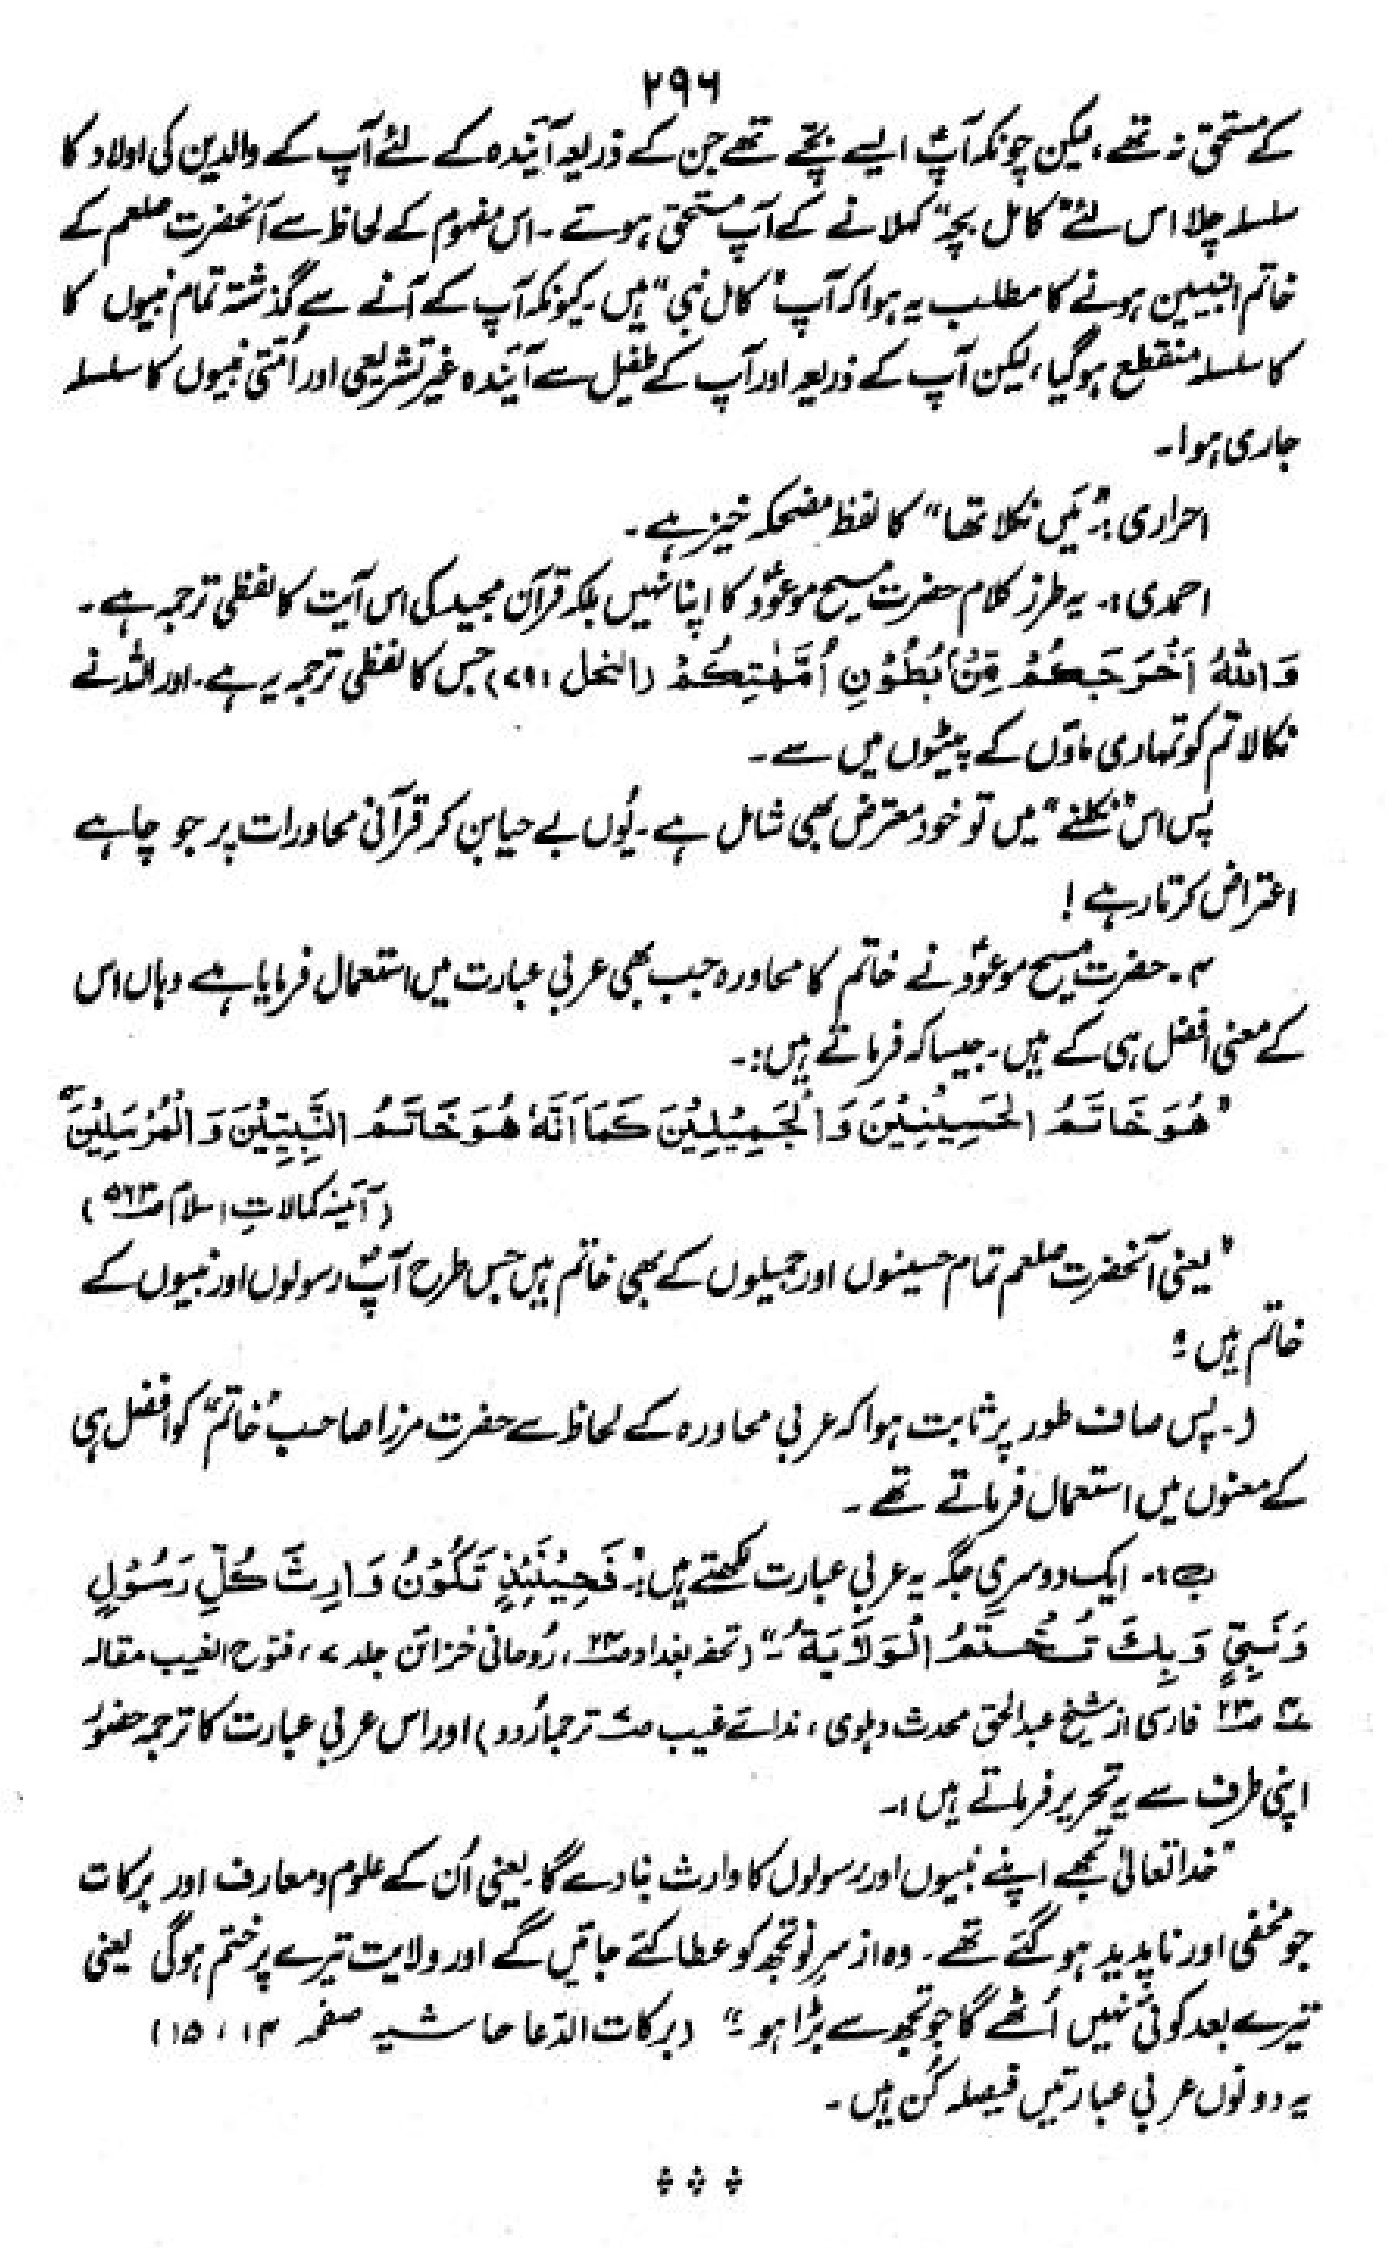 ۲۹۶
کے مستحق نہ تھے، لیکن چونکہ آپؑ ایسے بچے تھے جن کے ذریعہ آئندہ کے لئے آپ کے والدین کی اولاد کا
سلسلہ چلا اس لئے "کامل بچہ" کہلانے کے آپ مستحق ہوتے۔ اس مفہوم کے لحاظ سے آنحضرت صلعم کے
خاتم النبیین ہونے کا مطلب یہ ہوا کہ آپ "کامل نبی" ہیں۔ کیونکہ آپ کے آنے سے گذشتہ تمام نبیوں کا
کا سلسلہ منقطع ہو گیا، لیکن آپ کے ذریعہ اور آپ کے طفیل سے آئندہ غیر تشریعی اور اُمّتی نبیوں کا سلسلہ
جاری ہوا۔
احراری:۔ "مَیں نکلا تھا" کا لفظ مضحکہ خیز ہے۔
احمدی:۔ یہ طرز کلام حضرت مسیح موعودؑ کا اپنا نہیں بلکہ قرآن مجید کی اس آیت کا لفظی ترجمہ ہے۔
وَاللّٰهُ اَخْرَجَكُمْ مِّنْ بُطُوْنِ اُمَّهٰتِكُمْ (النحل : ۷۹) جس کا لفظی ترجمہ یہ ہے۔ اور اللہ نے
نکالا تم کو تمہاری ماؤں کے پیٹوں میں سے۔
پس اس "نکلنے" میں تو خود معترض بھی شامل ہے۔ یُوں بے حیا بن کر قرآنی محاورات پر جو چاہے
اعتراض کرتا رہے!
۳۔ حضرت مسیح موعودؑ نے خاتم کا محاورہ جب بھی عربی عبارت میں استعمال فرمایا ہے وہاں اس
کے معنی افضل ہی کے ہیں۔ جیسا کہ فرماتے ہیں:۔
"هُوَ خَاتَمُ الْحَسِيْنِيْنَ وَالْجَمِيْلِيْنَ كَمَا اَنَّهٗ هُوَ خَاتَمُ النَّبِيِّيْنَ وَالْمُرْسَلِيْنَ"
(آئینہ کمالاتِ اسلام ص۵۶۳)
"یعنی آنحضرت صلعم تمام حسینوں اور جمیلوں کے بھی خاتم ہیں جس طرح آپؐ رسولوں اور نبیوں کے
خاتم ہیں؛"
ا۔ پس صاف طور پر ثابت ہوا کہ عربی محاورہ کے لحاظ سے حضرت مرزا صاحب "خاتم" کو افضل ہی
کے معنوں میں استعمال فرماتے تھے۔
ب:۔ ایک دوسری جگہ یہ عربی عبارت لکھتے ہیں:۔ "فَحِيْنَئِذٍ تَكُوْنُ وَارِثَ كُلِّ رَسُوْلٍ
وَنَبِيٍّ وَبِكَ تُخْتَمُ الْوَلَايَةُ۔" (تحفہ بغداد ص۲۳، رُوحانی خزائن جلد ۷، فتوح الغیب مقالہ
۴ ص۲۳ فارسی از شیخ عبدالحق محدث دہلوی، ندائے غیب ترجمہ اُردو) اور اس عربی عبارت کا ترجمہ حضورؑ
اپنی طرف سے یہ تحریر فرماتے ہیں:۔
"خدا تعالیٰ تجھے اپنے نبیوں اور رسولوں کا وارث بنا دے گا۔ یعنی اُن کے علوم و معارف اور برکات
جو مخفی اور ناپدید ہو گئے تھے۔ وہ از سرِ نو تجھ کو عطا کئے جائیں گے اور ولایت تیرے پر ختم ہوگی یعنی
تیرے بعد کوئی نہیں اُٹھے گا جو تجھ سے بڑا ہو۔" (برکات الدعا حاشیہ صفحہ ۱۴، ۱۵)
یہ دونوں عربی عبارتیں فیصلہ کُن ہیں۔